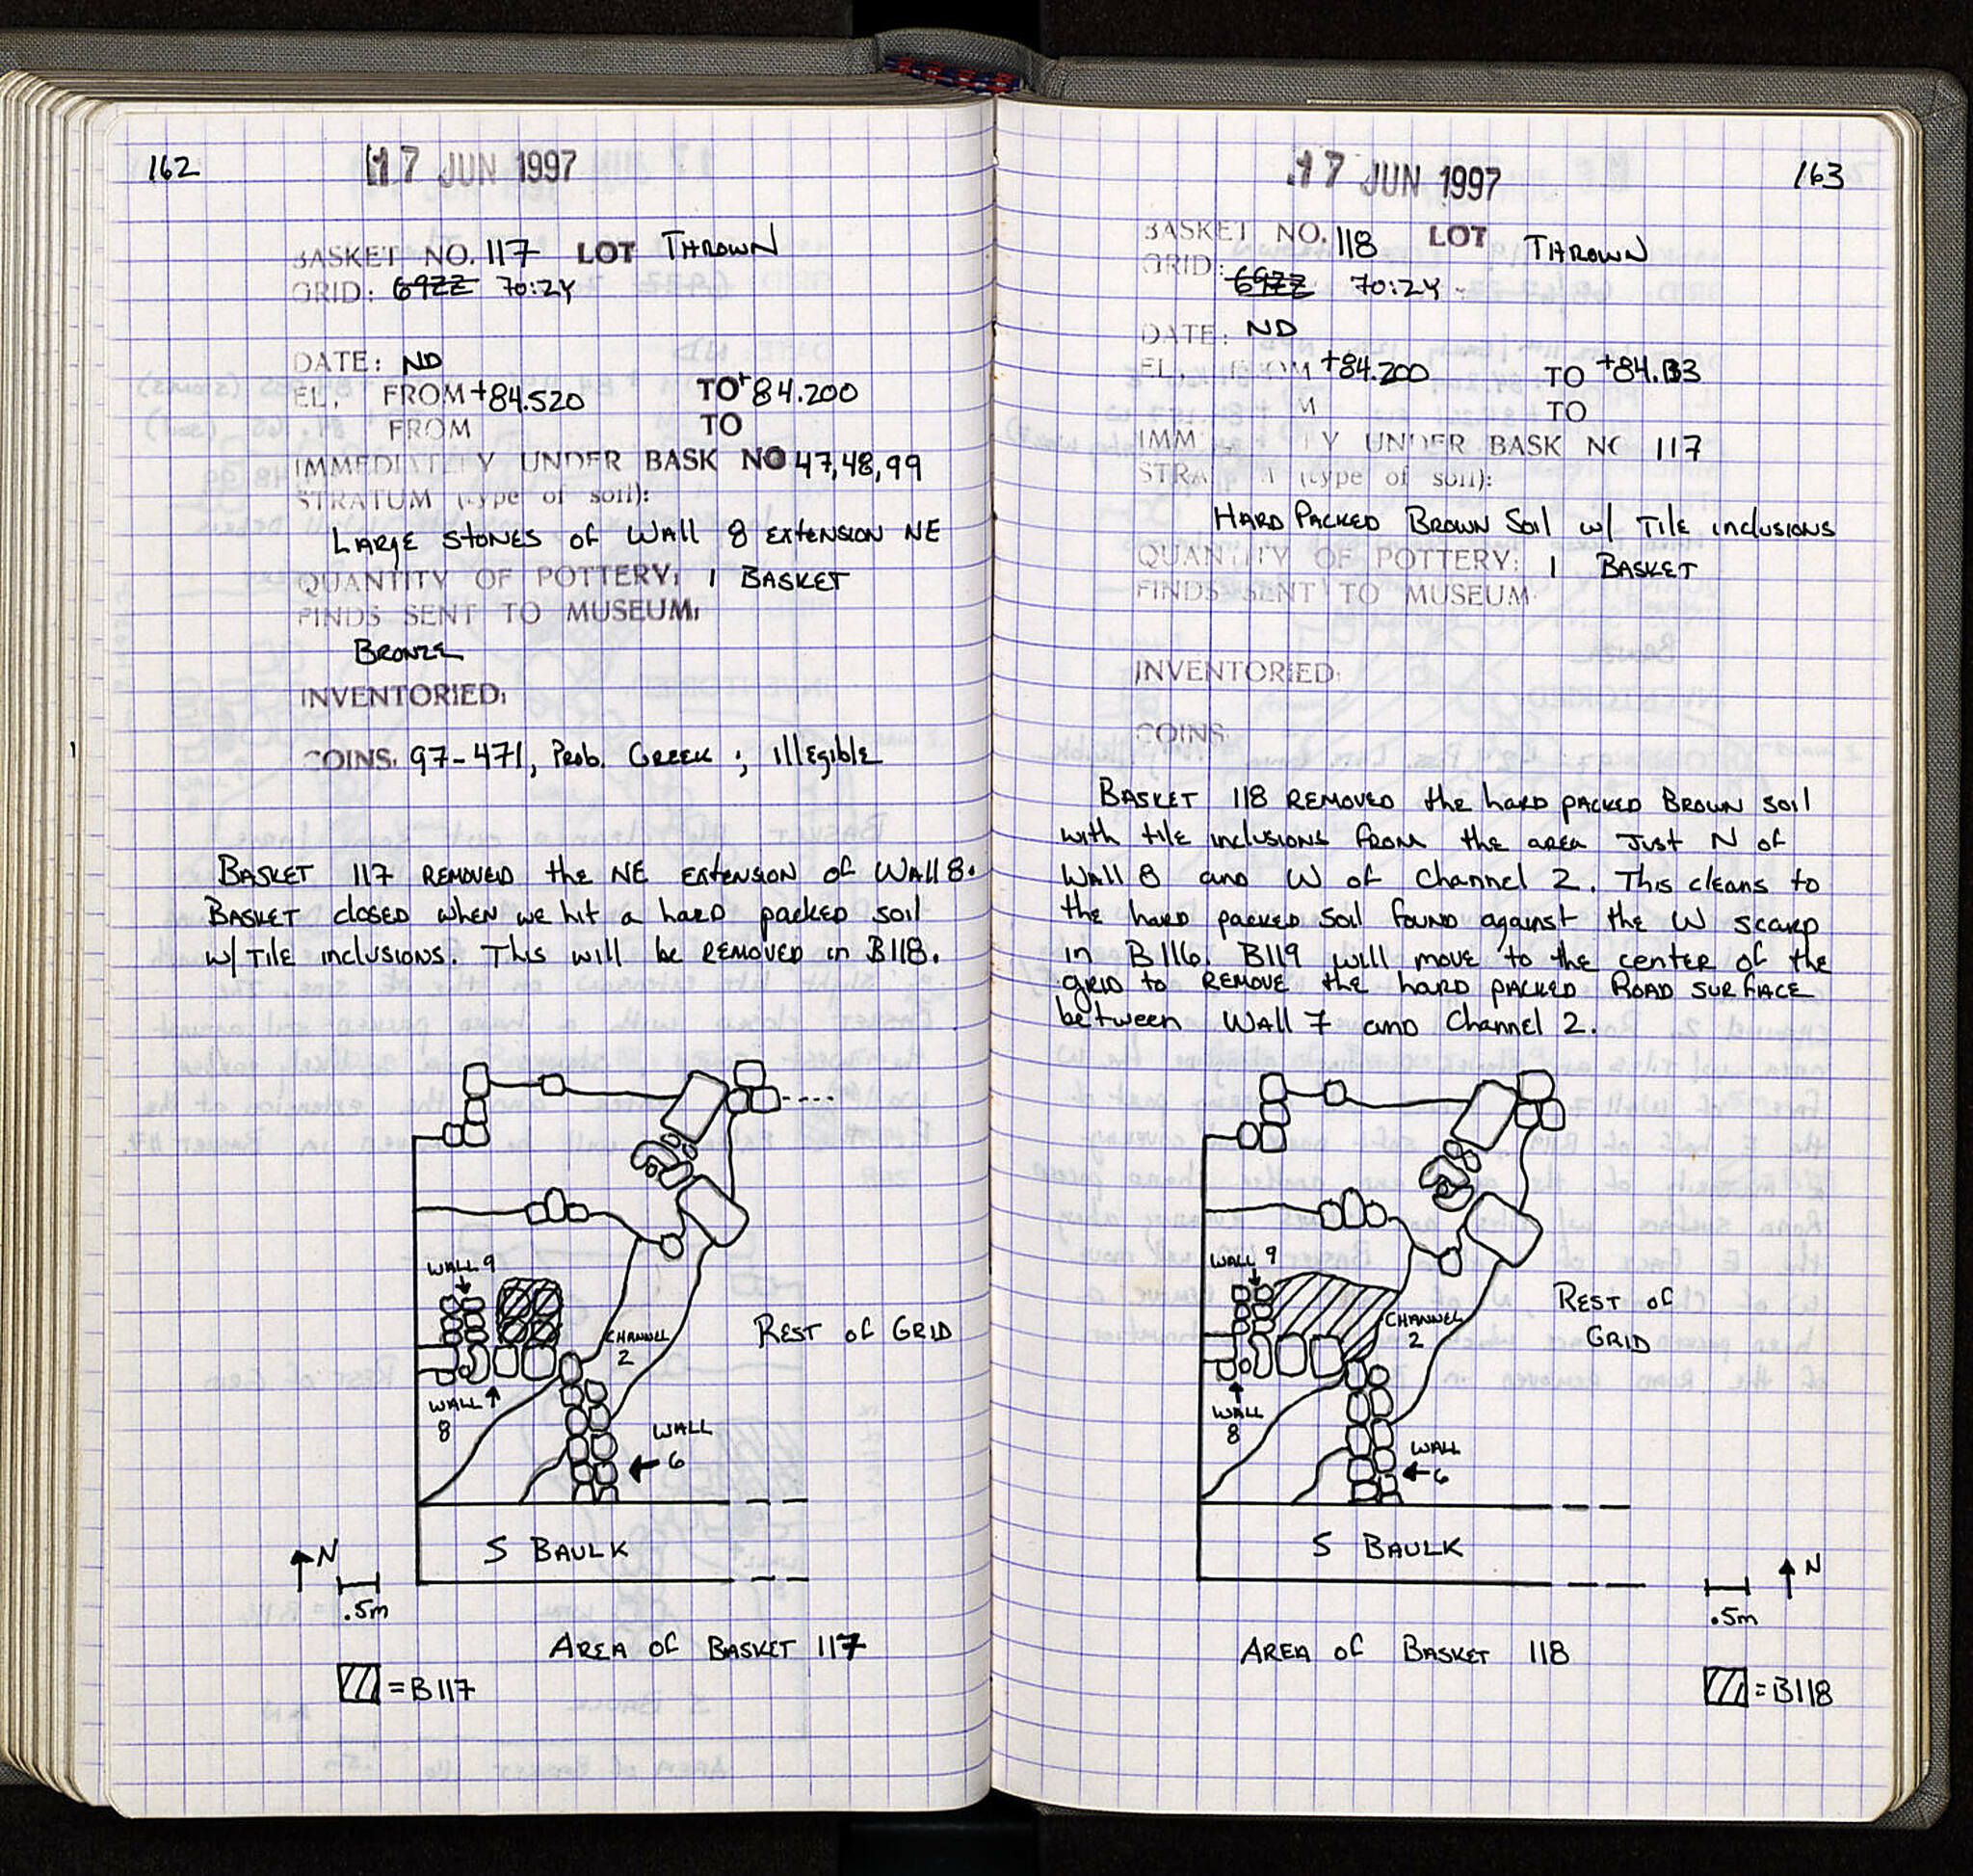 162
17 JUN 1997
BASKET NO. 117 LOT THROWN
GRID: 69ZZ 70:ZY
DATE: ND
EL. FROM +84.520 TO +84.200
FROM TO
IMMEDIATELY UNDER BASK NO 47,48,99
STRATUM (type of soil):
LARGE STONES OF WALL 8 EXTENSION NE
QUANTITY OF POTTERY: 1 BASKET
FINDS SENT TO MUSEUM:
BRONZE
INVENTORIED:
COINS: 97-471, Prob. GREEK; illEgible
BASKET 117 REMOVED the NE EXTENSION OF WALL 8.
BASKET closed when we hit a hard packed soil
w/ TilE inclusions. This will be REMOVED in B118.
WALL 9
CHANNEL
2
REST OF GRID
WALL
8
WALL
6
S BAULK
N
.5m
AREA OF BASKET 117
= B117
163
17 JUN 1997
BASKET NO. 118 LOT THROWN
GRID: 69ZZ 70:ZY
DATE: ND
EL. FROM +84.200 TO +84.133
M TO
IMM Y UNDER BASK NO 117
STRA (type of soil):
HARD PACKED BROWN Soil w/ TilE inclusions
QUANTITY OF POTTERY: 1 BASKET
FINDS SENT TO MUSEUM
INVENTORIED:
COINS
BASKET 118 REMOVED the hard packed BROWN soil
with tile inclusions from the area Just N of
Wall 8 and W of Channel 2. This cleans to
the hard packed soil found against the W scarp
in B116. B119 will move to the center of the
grid to REMOVE the hard packed ROAD SURFACE
between Wall 7 and Channel 2.
WALL 9
CHANNEL
2
REST OF
GRID
WALL
8
WALL
6
S BAULK
N
.5m
AREA OF BASKET 118
= B118